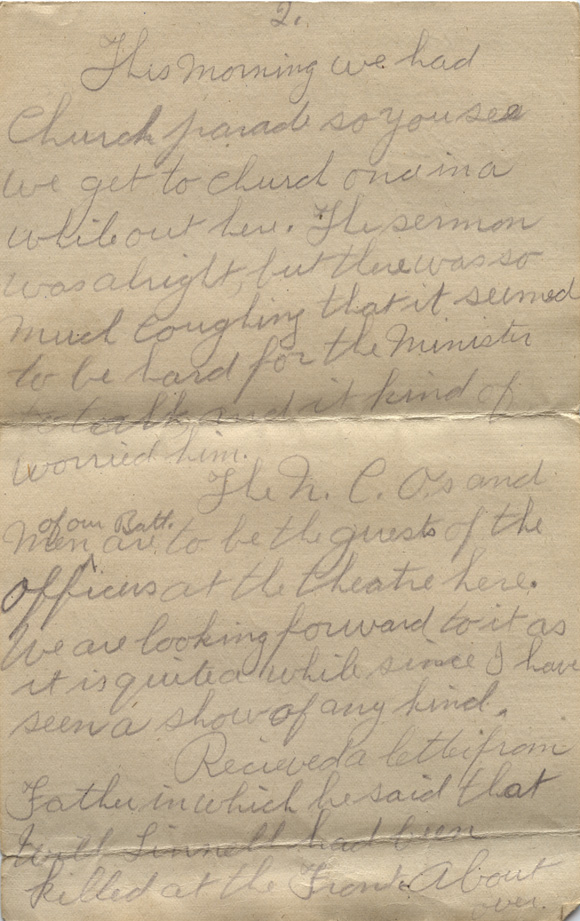 2.
This morning we had
Church parade so you see
we get to church once in a
while out here. The sermon
was alright, but there was so
much coughing that it seemed
to be hard for the Minister
to talk, and it kind of
worried him.
The N. C. O,s and
of our Batt.
Men are to be the guests of the
officers at the theatre here.
We are looking forward to it as
it is quite a while since I have
seen a show of any kind.
Recieved a letter from
Father in which he said that
Will Linnell had been
killed at the Front. About
ver.